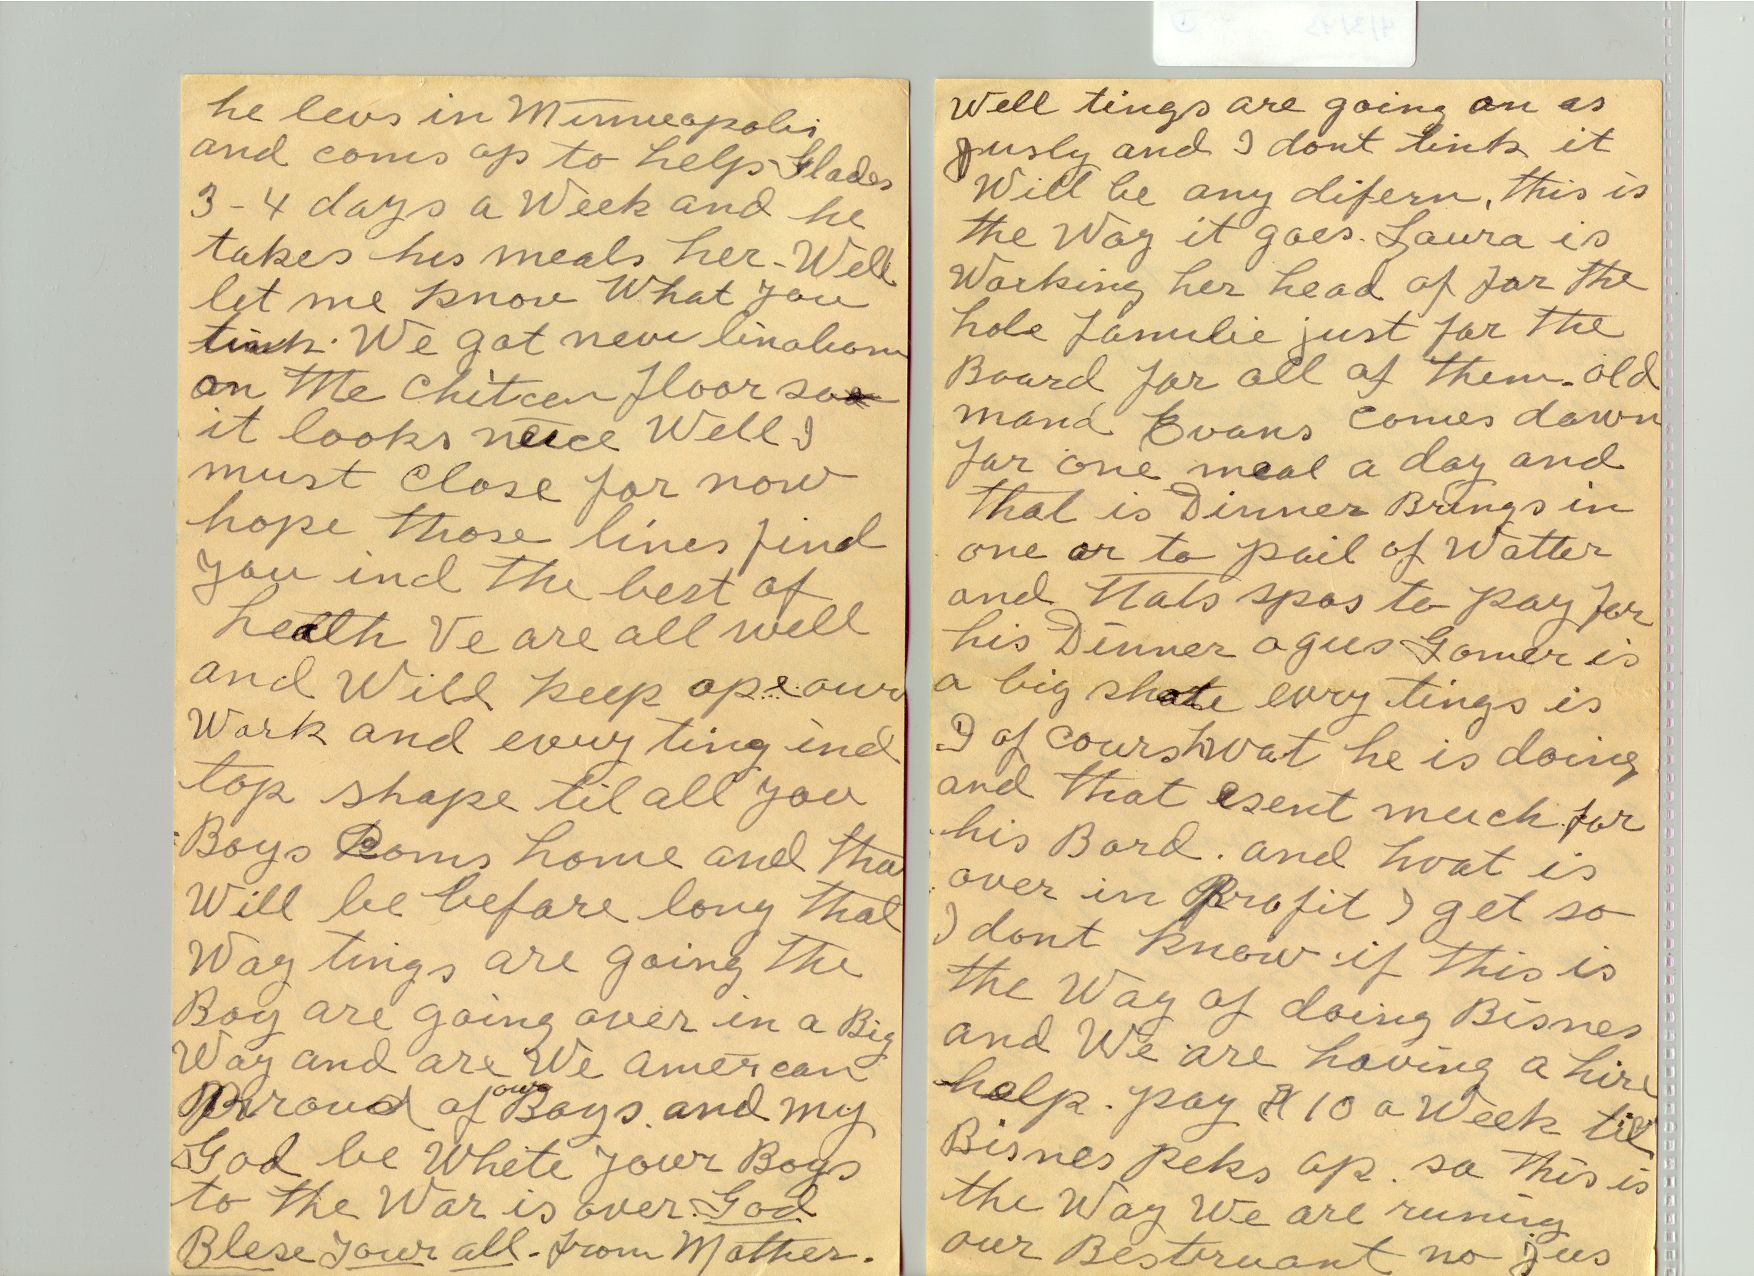 he levs in Minneapolis
and coms op to help Glades
3-4 days a Week and he
takes his meals her - Well
let me know What you
tink. We got new linoliom
on the Chitcen floor so
it looks neice Well I
must Close for now
hope those lines find
you ind the best of
health Ve are all well
and Will keep ope our
Work and every ting ind
top shape til all you
Boys Coms home and that
Will be before long that
Way tings are going the
Boy are going over in a Big
Way and are We American
Proud of our Boys. and my
God be White your Boys
to the War is over. God
Blese your all - from Mother.
Well tings are going on as
jusly and I dont tink it
Will be any difern, this is
the Way it goes. Laura is
Working her head of for the
hole familie just for the
Board for all of them - old
mand Evans comes down
for one meal a day and
that is Dinner Brings in
one or to pail of Watter
and thats spos to pay for
his Dinner Gomer is
a big shote every tings is
I of Cours hwat he is doing
and that esent much for
his Bord. and hvat is
over in Profit I get so
I dont know if this is
the Way of doing Bisnes
and We are having a hire
help. pay $ 10 a Week til
Bisnes peks op. so this is
the Way We are runing
our Besteruant no jus